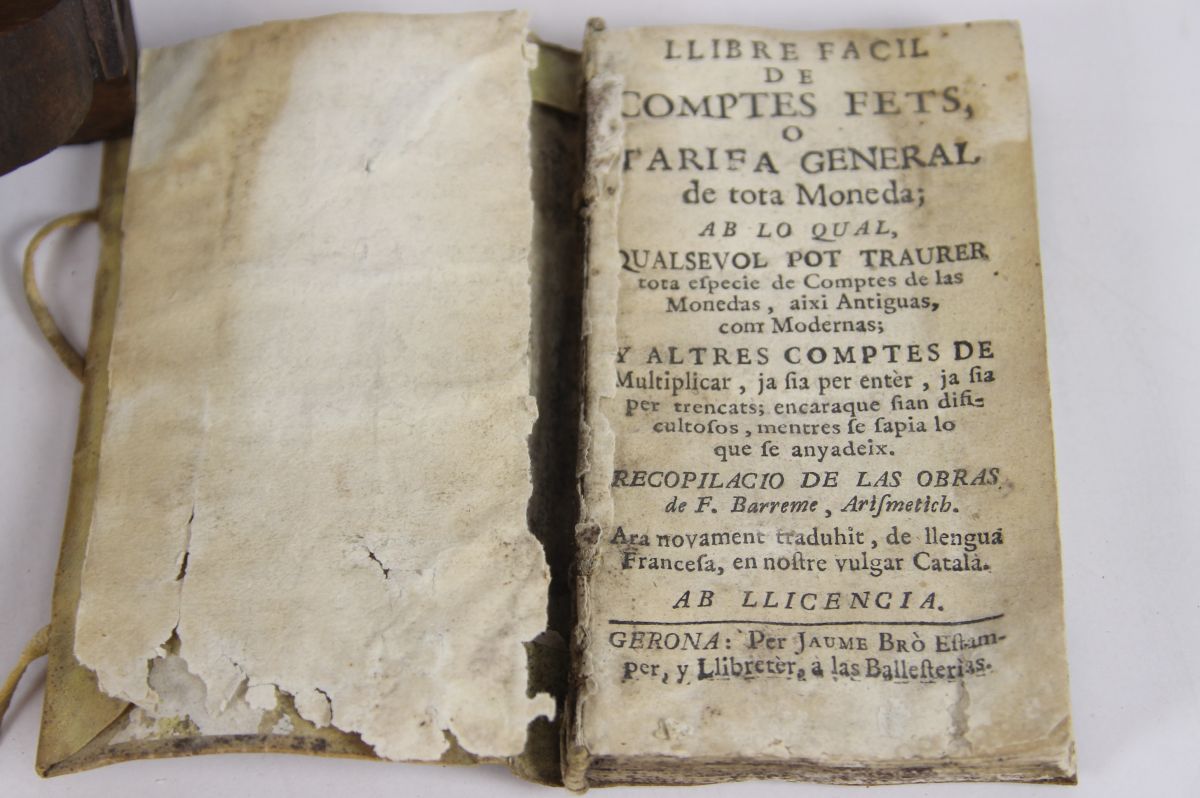 LLIBRE FACIL
DE
COMPTES FETS,
O
TARIFA GENERAL
de tota Moneda;
AB LO QUAL,
QUALSEVOL POT TRAURER
tota eſpecie de Comptes de las
Monedas, aixi Antiguas,
com Modernas;
Y ALTRES COMPTES DE
Multiplicar, ja ſia per entèr, ja ſia
per trencats; encaraque ſian difi-
cultoſos, mentres ſe ſapia lo
que ſe anyadeix.
RECOPILACIO DE LAS OBRAS
de F. Barreme, Ariſmetich.
Ara novament traduhit, de llengua
Franceſa, en noſtre vulgar Català.
AB LLICENCIA.
GERONA: Per JAUME BRÒ Eſtam-
per, y Llibretèr, a las Balleſterias.